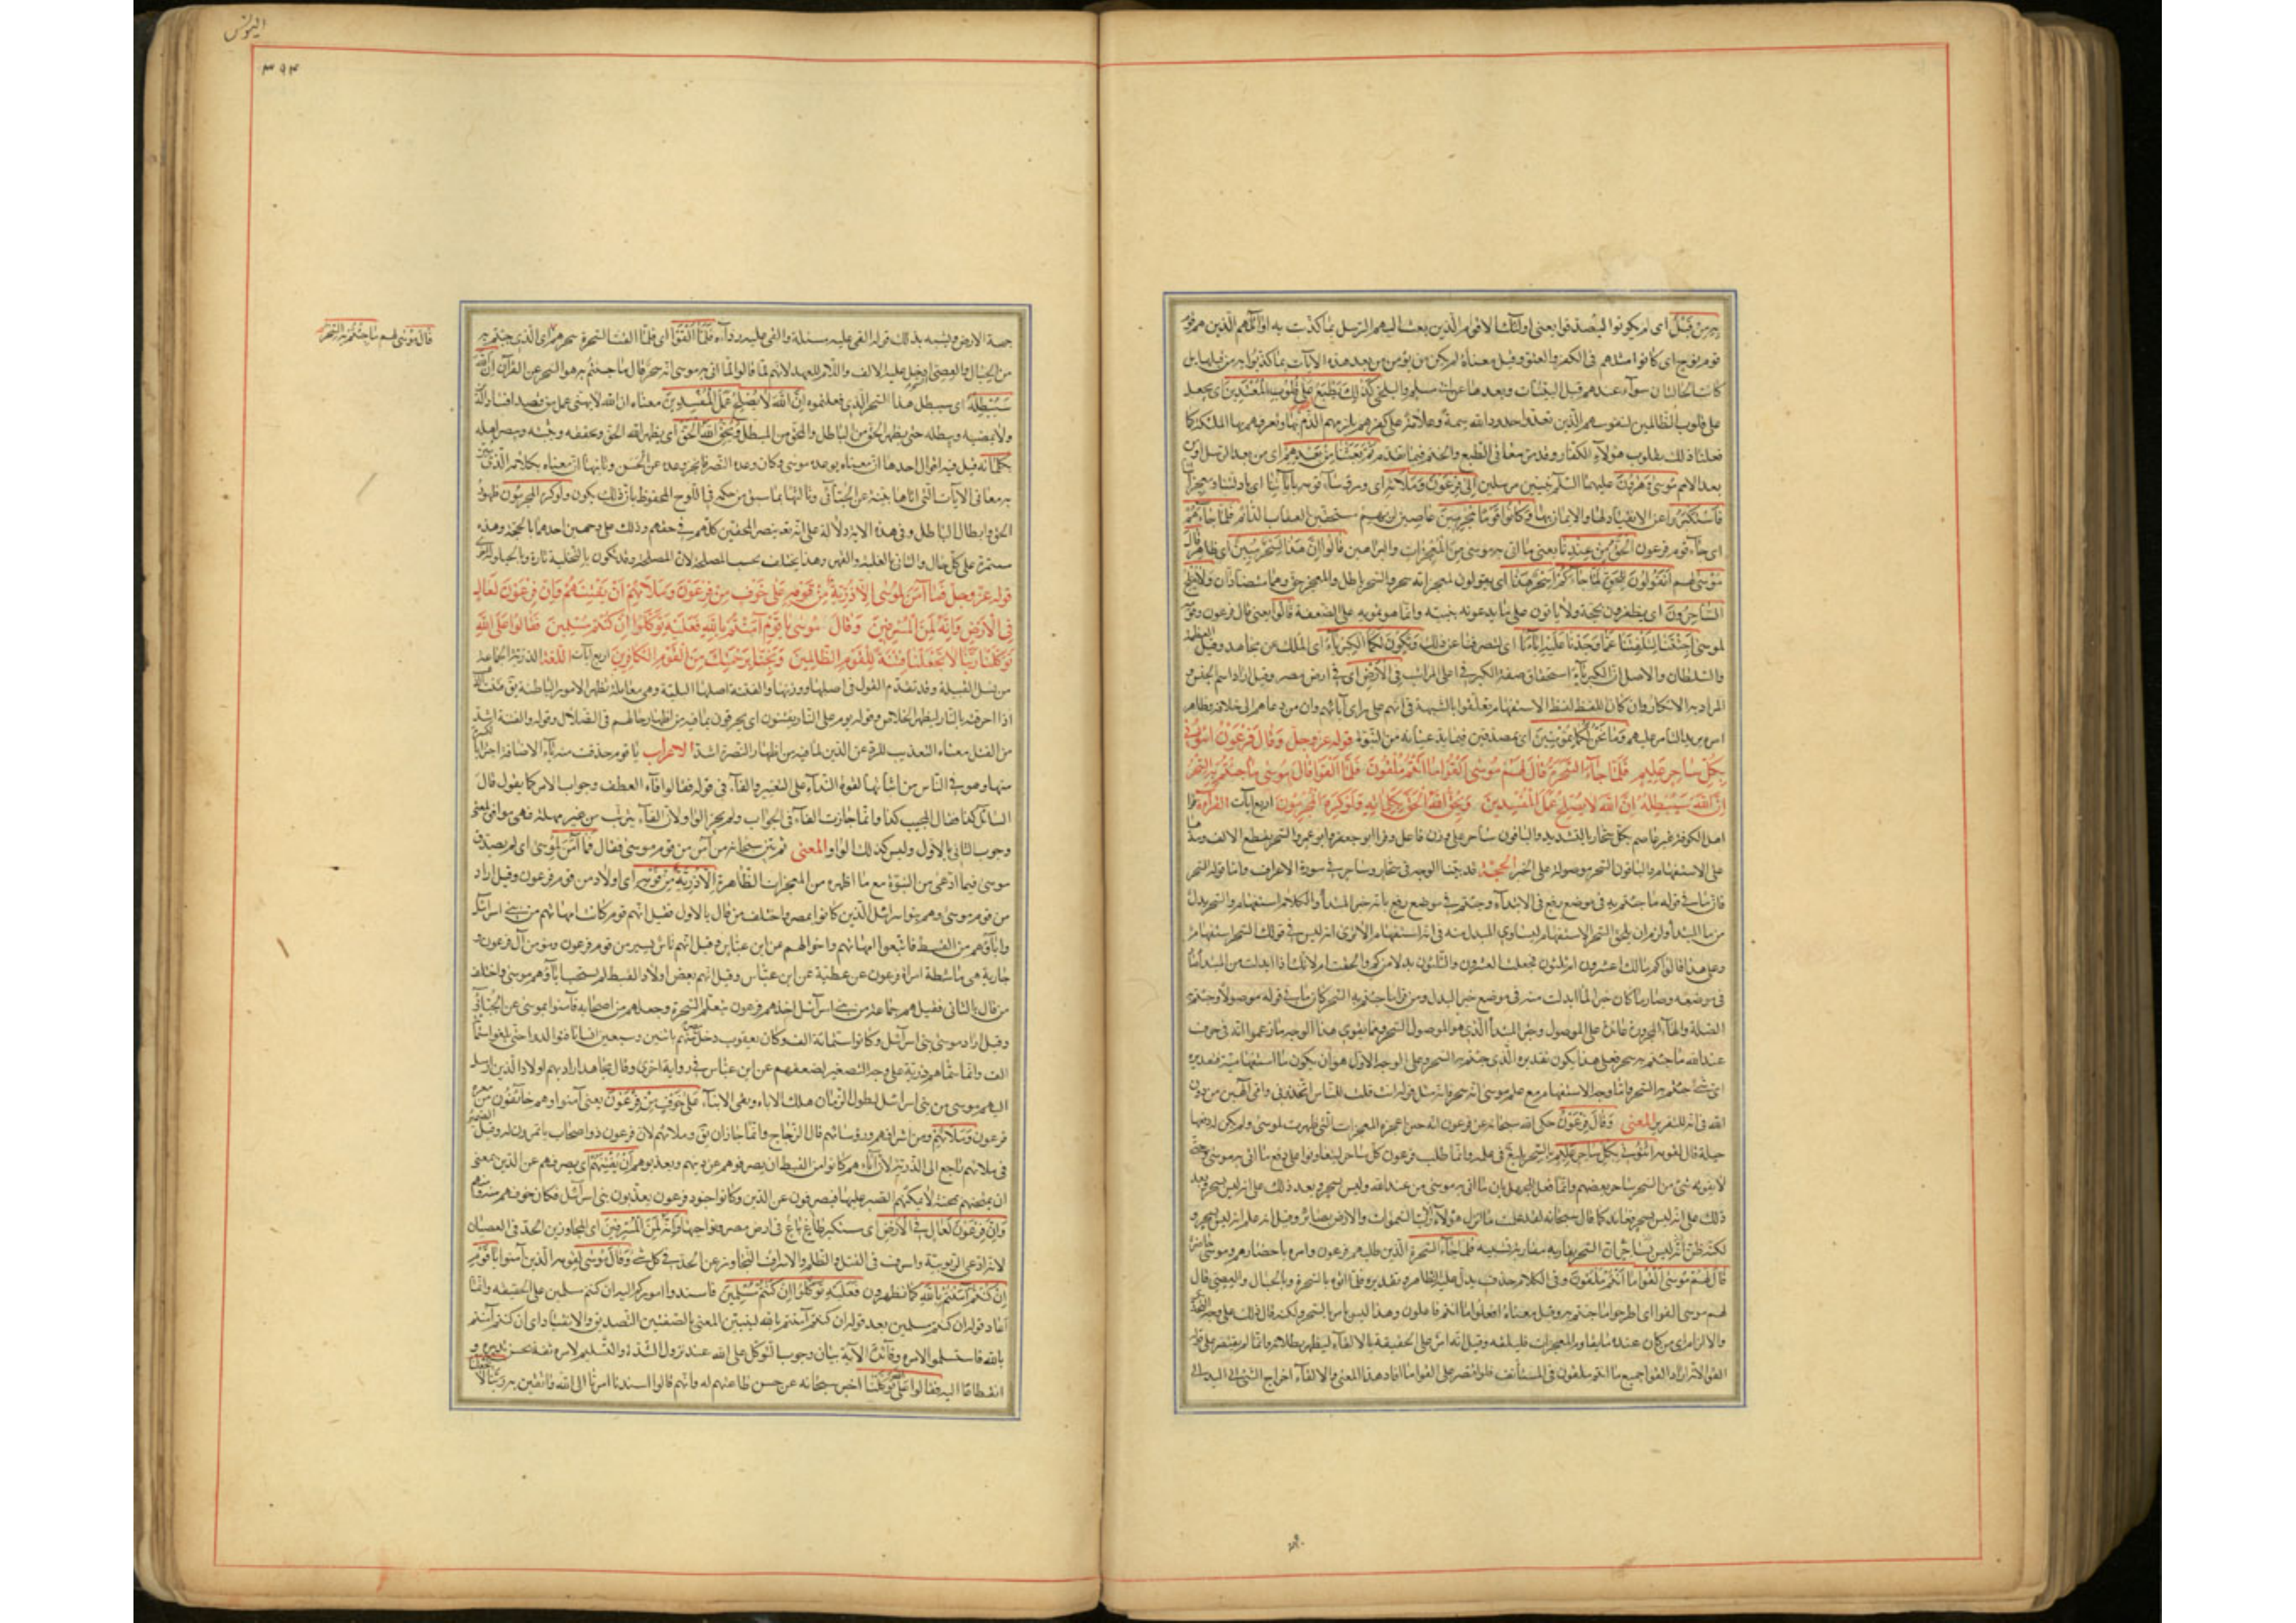 به من قبل اى لم يكونوا ليصدقوا يعنى اولئك الاقوام الذين بعث اليهم الرسل بما كذبت به اوائلهم الذين هم قوم
قوم نوح اى كانوا مثلهم فى الكفر والعتو وقيل معناه لم يكن منهم من يؤمن من بعد هذه الآيات بما كذبوا به من قبلها بل
كانت الحالتان سوآء عندهم قبل البينات وبعدها عن ابى مسلم والبلخى كذلك نطبع على قلوب المعتدين اى نجعل
على قلوب الظالمين لنفوسهم الذين تعدوا حدود الله سمة وعلامة على كفرهم يلزمهم الذم بها ويعرفهم بها الملئكة كما
فعلنا ذلك بقلوب هؤلآء الكفار وقد مر معانى الطبع والختم فيما تقدم ثم بعثنا من بعدهم اى من بعد الرسل او من
بعد الامم موسى وهرون عليهما السلم نبيين مرسلين الى فرعون وملائه اى ورؤسآء قومه بآياتنا اى بادلتنا ومعجزاتنا
فاستكبروا عن الانقياد لها والايمان بها وكانوا قوما مجرمين عاصين لربهم مستحقين العقاب الدائم فلما جآءهم
اى جآء قوم فرعون الحق من عندنا يعنى ما اتى به موسى من المعجزات والبراهين قالوا ان هذا لسحر مبين اى ظاهر قال
موسى لهم اتقولون للحق لما جآءكم اسحر هذا اى يقولون لمعجزاته سحر والسحر باطل والمعجز حق وهما متضادان ولا يفلح
الساحرون اى يظفرون بحجة ولا ياتون على ما يدعونه ببينة وانما هو تمويه على الضعفة قالوا يعنى قال فرعون وقومه
لموسى اجئتنا لتلفتنا عما وجدنا عليه ابآءنا اى لتصرفنا عن ذلك وتكون لكما الكبريآء اى الملك عن مجاهد وقيل العظمة
والسلطان والاصل ان الكبريآء استحقاق صفة الكبر فى اعلى المراتب فى الارض اى فى ارض مصر وقيل اراد اسم الجنس و
المراد به الانكار وان كان اللفظ لفظ الاستفهام تعلقوا بالشبهة فى انهم على راى آبائهم وان من دعاهم الى خلافه فظاهر
امره يريد التأمر عليهم وما نحن لكما بمؤمنين اى بمصدقين فيما تدعيانه من النبوة قوله عز وجل وقال فرعون ائتونى
بكل ساحر عليم فلما جآء السحرة قال لهم موسى القوا ما انتم ملقون فلما القوا قال موسى ما جئتم به السحر
ان الله سيبطله ان الله لا يصلح عمل المفسدين ويحق الله الحق بكلماته ولو كره المجرمون اربع آيات القرآءة قرا
اهل الكوفة غير عاصم بكل سحار بالتشديد والباقون ساحر على وزن فاعل وقرا ابو جعفر وابو عمرو السحر بقطع الالف ومدها
على الاستفهام والباقون السحر موصولة على الخبر الحجة قد بينا الوجه فى سحار وساحر فى سورة الاعراف واما قوله السحر
فان ما فى قوله ما جئتم به فى موضع رفع فى الابتدآء وجئتم فى موضع رفع بانه خبر المبتدأ والكلام استفهام والسحر بدل
من ما المبتدأ ولزم ان يلحق السحر الاستفهام ليساوى المبدل منه فى انه استفهام الا ترى انه ليس فى قولك السحر استفهام
وعلى هذا قالوا كم مالك اعشرون ام ثلثون فجعلت العشرون والثلثون بدلا من كم والحقت ام لانك اذا ابدلت من المبتدأ
فى موضعه وصار ما كان خبرا لما ابدلت منه فى موضع خبر البدل ومن قرا ما جئتم به السحر كان ما فى قوله موصولا وجئتم به
الصلة والهآء المجرورة عائدة على الموصول وخبر المبتدأ الذى هو الموصول السحر ومما يقوى هذا الوجه ما زعموا انه فى حرف
عبد الله ما جئتم به سحر فعلى هذا يكون تقديره الذى جئتم به السحر وعلى الوجه الاول هو ان يكون ما استفهامية فتقديره
اى شئ جئتم به السحر وانما وجه الاستفهام مع علم موسى انه سحر فانه مثل قوله اانت قلت للناس اتخذونى وامى الهين من دون
الله فى انه للتقرير المعنى وقال فرعون حكى الله سبحانه عن فرعون انه حين اعجزه المعجزات التى ظهرت لموسى ولم يكن له دفعها
حيلة قال لقومه ائتونى بكل ساحر عليم بالسحر بليغ فى علمه وانما طلب فرعون كل ساحر ليتعاونوا على دفع ما اتى به موسى
لا يفوته شئ من السحر بتأخر بعضهم وانما فعل ذلك للجهل بان ما اتى به موسى من عند الله وليس بسحر وبعد ذلك علم انه ليس بسحر
ذلك على انه ليس بسحر فعاند كما قال سبحانه لقد علمت ما انزل هؤلآء الا رب السموات والارض بصائر وقيل انه علم انه ليس بسحر و
لكنه ظن ان السحر يقاربه مقاربة تشبيه فلما جآء السحرة الذين طلبهم فرعون وامر باحضارهم وموسى حاضر
قال لهم موسى القوا ما انتم ملقون وفى الكلام حذف يدل عليه الظاهر وتقديره فلما اتوه بالسحرة وبالحبال والعصى قال
لهم موسى القوا اى اطرحوا ما جئتم به وقيل معناه افعلوا ما انتم فاعلون وهذا ليس بامر بالسحر ولكنه قال ذلك على وجه التحدى
والالزام اى من كان عنده ما يقاوم المعجزات فليلقه وقيل انه امر على الحقيقة بالالقآء ليظهر بطلانه وانما لم يقتصر على قوله
القوا لانه اراد القوا جميع ما انتم ملقون فى المستأنف فلو اقتصر على القوا ما افاد هذا المعنى والالقآء اخراج الشئ عن اليد الى
اليونس
٣٩٤
قال موسى لهم ما جئتم به السحر
جهة الارض ويشبه بذلك قوله القى عليه مسئلة والقى عليه رداءه فلما القوا اى فلما القت السحرة سحرهم اى الذى جئتم به
من الحبال والعصى ادخل عليه الالف واللام للعهد لانهم لما قالوا لما اتى به موسى انه سحر قال ما جئتم به هو السحر عن الفرآء ان الله
سيبطله اى سيبطل هذا السحر الذى فعلتموه ان الله لا يصلح عمل المفسدين معناه ان الله لا يهيئ عمل من قصد افساد الدين
ولا يمضيه ويبطله حتى يظهر الحق من الباطل والمحق من المبطل ويحق الله الحق اى يظهر الله الحق ويحققه ويثبته وينصر اهله
بكلماته قيل فيه اقوال احدها ان معناه بوعده موسى وكان وعده النصر فانجز وعده عن الحسن وثانيها ان معناه بكلامه الذى يبين
به معانى الآيات التى اتاها نبيه عن الجبائى وثالثها بما سبق من حكمه فى اللوح المحفوظ بان ذلك يكون ولو كره المجرمون ظهور
الحق وابطال الباطل وفى هذه الاية دلالة على انه تعالى ينصر المحقين كلهم فى حقهم وذلك على وجهين احدهما بالحجة وهذه
مستمرة على كل حال والثانى بالغلبة والقهر وهذا يختلف بحسب المصلحة لان المصلحة قد تكون بالتخلية تارة وبالحيلولة اخرى
قوله عز وجل فما آمن لموسى الا ذرية من قومه على خوف من فرعون وملائهم ان يفتنهم وان فرعون لعال
فى الارض وانه لمن المسرفين وقال موسى يا قوم ان كنتم آمنتم بالله فعليه توكلوا ان كنتم مسلمين فقالوا على الله
توكلنا ربنا لا تجعلنا فتنة للقوم الظالمين ونجنا برحمتك من القوم الكافرين اربع آيات اللغة الذرية الجماعة
من نسل القبيلة وقد تقدم القول فى اصلها ووزنها والفتنة اصلها البلية وهى معاملة تظهر الامور الباطنة يقال فتنت الذهب
اذا احرقته بالنار ليظهر الخلاص وقوله يوم هم على النار يفتنون اى يحرقون بما فيه من اظهار حالهم فى الضلال وقوله والفتنة اشد
من القتل معناه التعذيب للرد عن الدين لما فيه من اظهار النصرة اشد الاعراب يا قوم حذفت منه يآء الاضافة اجتزآء
منها وهو فى النآس من اثباتها لقوة النداء على التغيير والفآء فى قوله فقالوا فآء العطف وجواب الامر كما يقول قال
السائل كذا فقال المجيب كذا وانما جازت الفآء فى الجواب ولم يجز الواو لان الفآء يترتب من غير مهلة فهى موافقة لمعنى
وجوب الثانى بالاول وليس كذلك الواو المعنى ثم بين سبحانه من آمن من قوم موسى فقال فما آمن لموسى اى لم يصدق
موسى فيما ادعى من النبوة مع ما اظهره من المعجزات الظاهرة الا ذرية من قومه اى اولاد من قوم فرعون وقيل اراد
من قوم موسى وهم بنو اسرائيل الذين كانوا بمصر واختلف من قال بالاول فقيل انهم قوم كانت امهاتهم من بنى اسرائيل
وابآؤهم من القبط فاتبعوا امهاتهم واخوالهم عن ابن عباس وقيل انهم ناس يسير من قوم فرعون ومؤمن آل فرعون و
جارية هى ماشطة امراة فرعون عن عطية عن ابن عباس وقيل انهم بعض اولاد القبط لم يستجب ابآؤهم موسى واختلف
من قال بالثانى فقيل هم جماعة من بنى اسرآئيل اخذهم فرعون بتعلم السحرة وجعلهم من اصحابه فآمنوا بموسى عن الجبائى
وقيل اراد موسى بنى اسرآئيل وكانوا ستمائة الف وكان يعقوب دخل مصر منهم باثنين وسبعين انسانا فتوالدوا حتى بلغوا ستمائة
الف وانما سماهم ذرية على وجه التصغير لضعفهم عن ابن عباس فى رواية اخرى وقال مجاهد اراد بهم اولاد الذين ارسل
اليهم موسى من بنى اسرآئيل لطول الزمان هلك الاباء وبقى الابنآء على خوف من فرعون يعنى آمنوا وهم خائفون من معرة
فرعون وملائهم ومن اشرافهم ورؤسائهم قال الزجاج وانما جاز ان يقال وملائهم لان فرعون ذو اصحاب ياتمرون له وقيل الضمير
فى ملائهم راجع الى الذرية لان آباءهم كانوا من القبط ان يصرفوهم عن دينهم ويعذبوهم ان يفتنهم اى يصرفهم عن الدين بمعنى
ان يمتحنهم بمحنة لا يمكنهم الصبر عليها فينصرفون عن الدين وكانوا جنود فرعون يعذبون بنى اسرآئيل فكان خوفهم منه ومنهم
وان فرعون لعال فى الارض اى مستكبر طاغ باغ فى ارض مصر ونواحيها وانه لمن المسرفين اى المجاوزين الحد فى العصيان
لانه ادعى الربوبية واسرف فى القتل والظلم والاسراف التجاوز عن الحد فى كل شئ وقال موسى لقومه الذين آمنوا يا قوم
ان كنتم آمنتم بالله كما تظهرون فعليه توكلوا ان كنتم مسلمين فاسندوا اموركم اليه ان كنتم مسلمين على الحقيقة وانما
اعاد قوله ان كنتم مسلمين بعد قوله ان كنتم آمنتم بالله ليتبين المعنى بالصفتين التصديق والانقياد اى ان كنتم آمنتم
بالله فاستسلموا لامره وفائدة الآية بيان وجوب التوكل على الله عند نزول الشدة والتسليم لامره ثقة بحسن تدبيره و
انقطاعا اليه فقالوا على الله توكلنا اخبر سبحانه عن حسن طاعتهم له وانهم قالوا اسندنا امرنا الى الله واثقين به ربنا لا تجعلنا